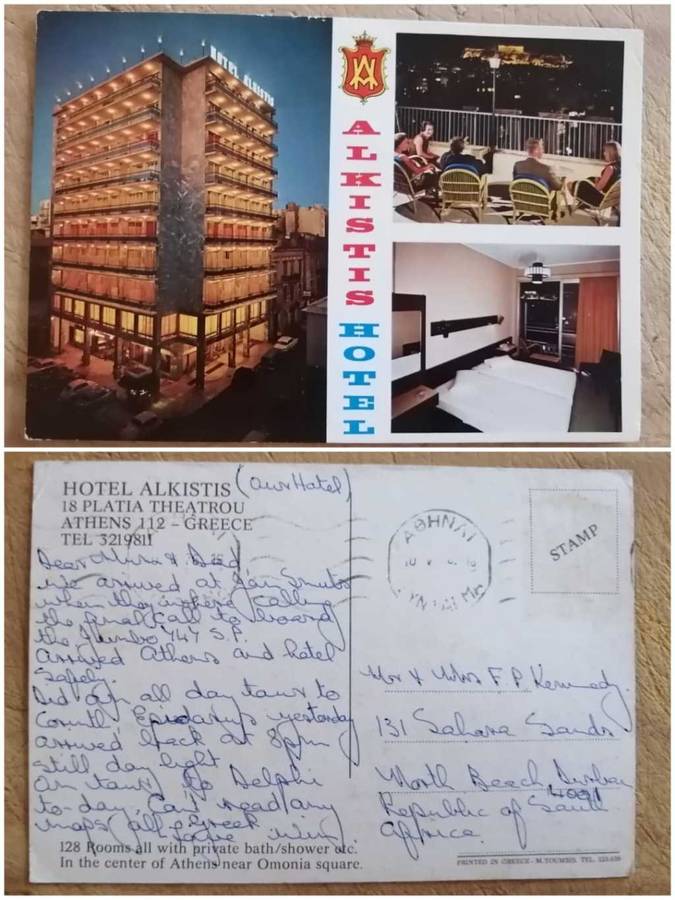 HOTEL ALKISTIS
ALKISTIS
HOTEL
HOTEL ALKISTIS (our Hotel)
18 PLATIA THEATROU
ATHENS 112 – GREECE
TEL 3219811
Dear Mum & Dad
We arrived at Jan Smuts
when they were calling
the final call to board
the Jumbo 747 S.P.
Arrived Athens and hotel
safely.
Did an all day tour to
Corinth, yesterday
arrived back at 8pm
still day light.
On tour to Delphi
to-day. Can't read any
maps all Greek
128 Rooms all with private bath/shower etc.
In the center of Athens near Omonia square.
ΑΘΗΝΑΙ
STAMP
Mr & Mrs F. P. Kennedy.
131 Sahara Sands
North Beach Durban
4001
Republic of South
Africa.
PRINTED IN GREECE - M.TOUMBIS. TEL.